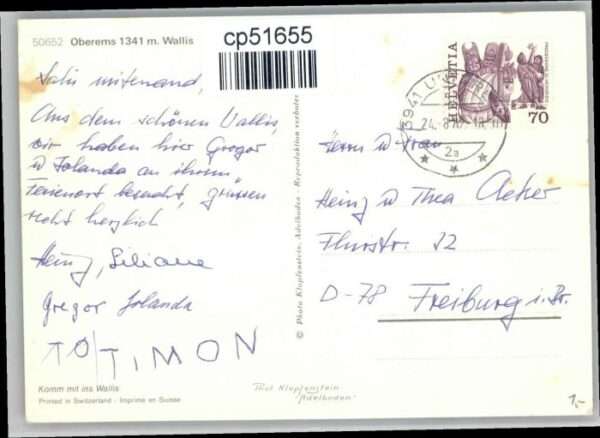 50652 Oberems 1341 m. Wallis
cp51655
Salü mitenand,
Aus dem schönen Wallis,
wir haben hier Gregor
u Jolanda an ihrem
Ferienort besucht, grüssen
recht herzlich
Heinz, Liliane
Gregor Jolanda
TIMON
Komm mit ins Wallis
Printed in Switzerland - Imprimé en Suisse
© Photo Klopfenstein, Adelboden - Reproduktion verboten
Photo Klopfenstein
Adelboden
HELVETIA
70
3941
24.-8.
2a
Herrn u Frau
Heinz u Thea Acker
32
D-78 Freiburg i. Br.
1,-